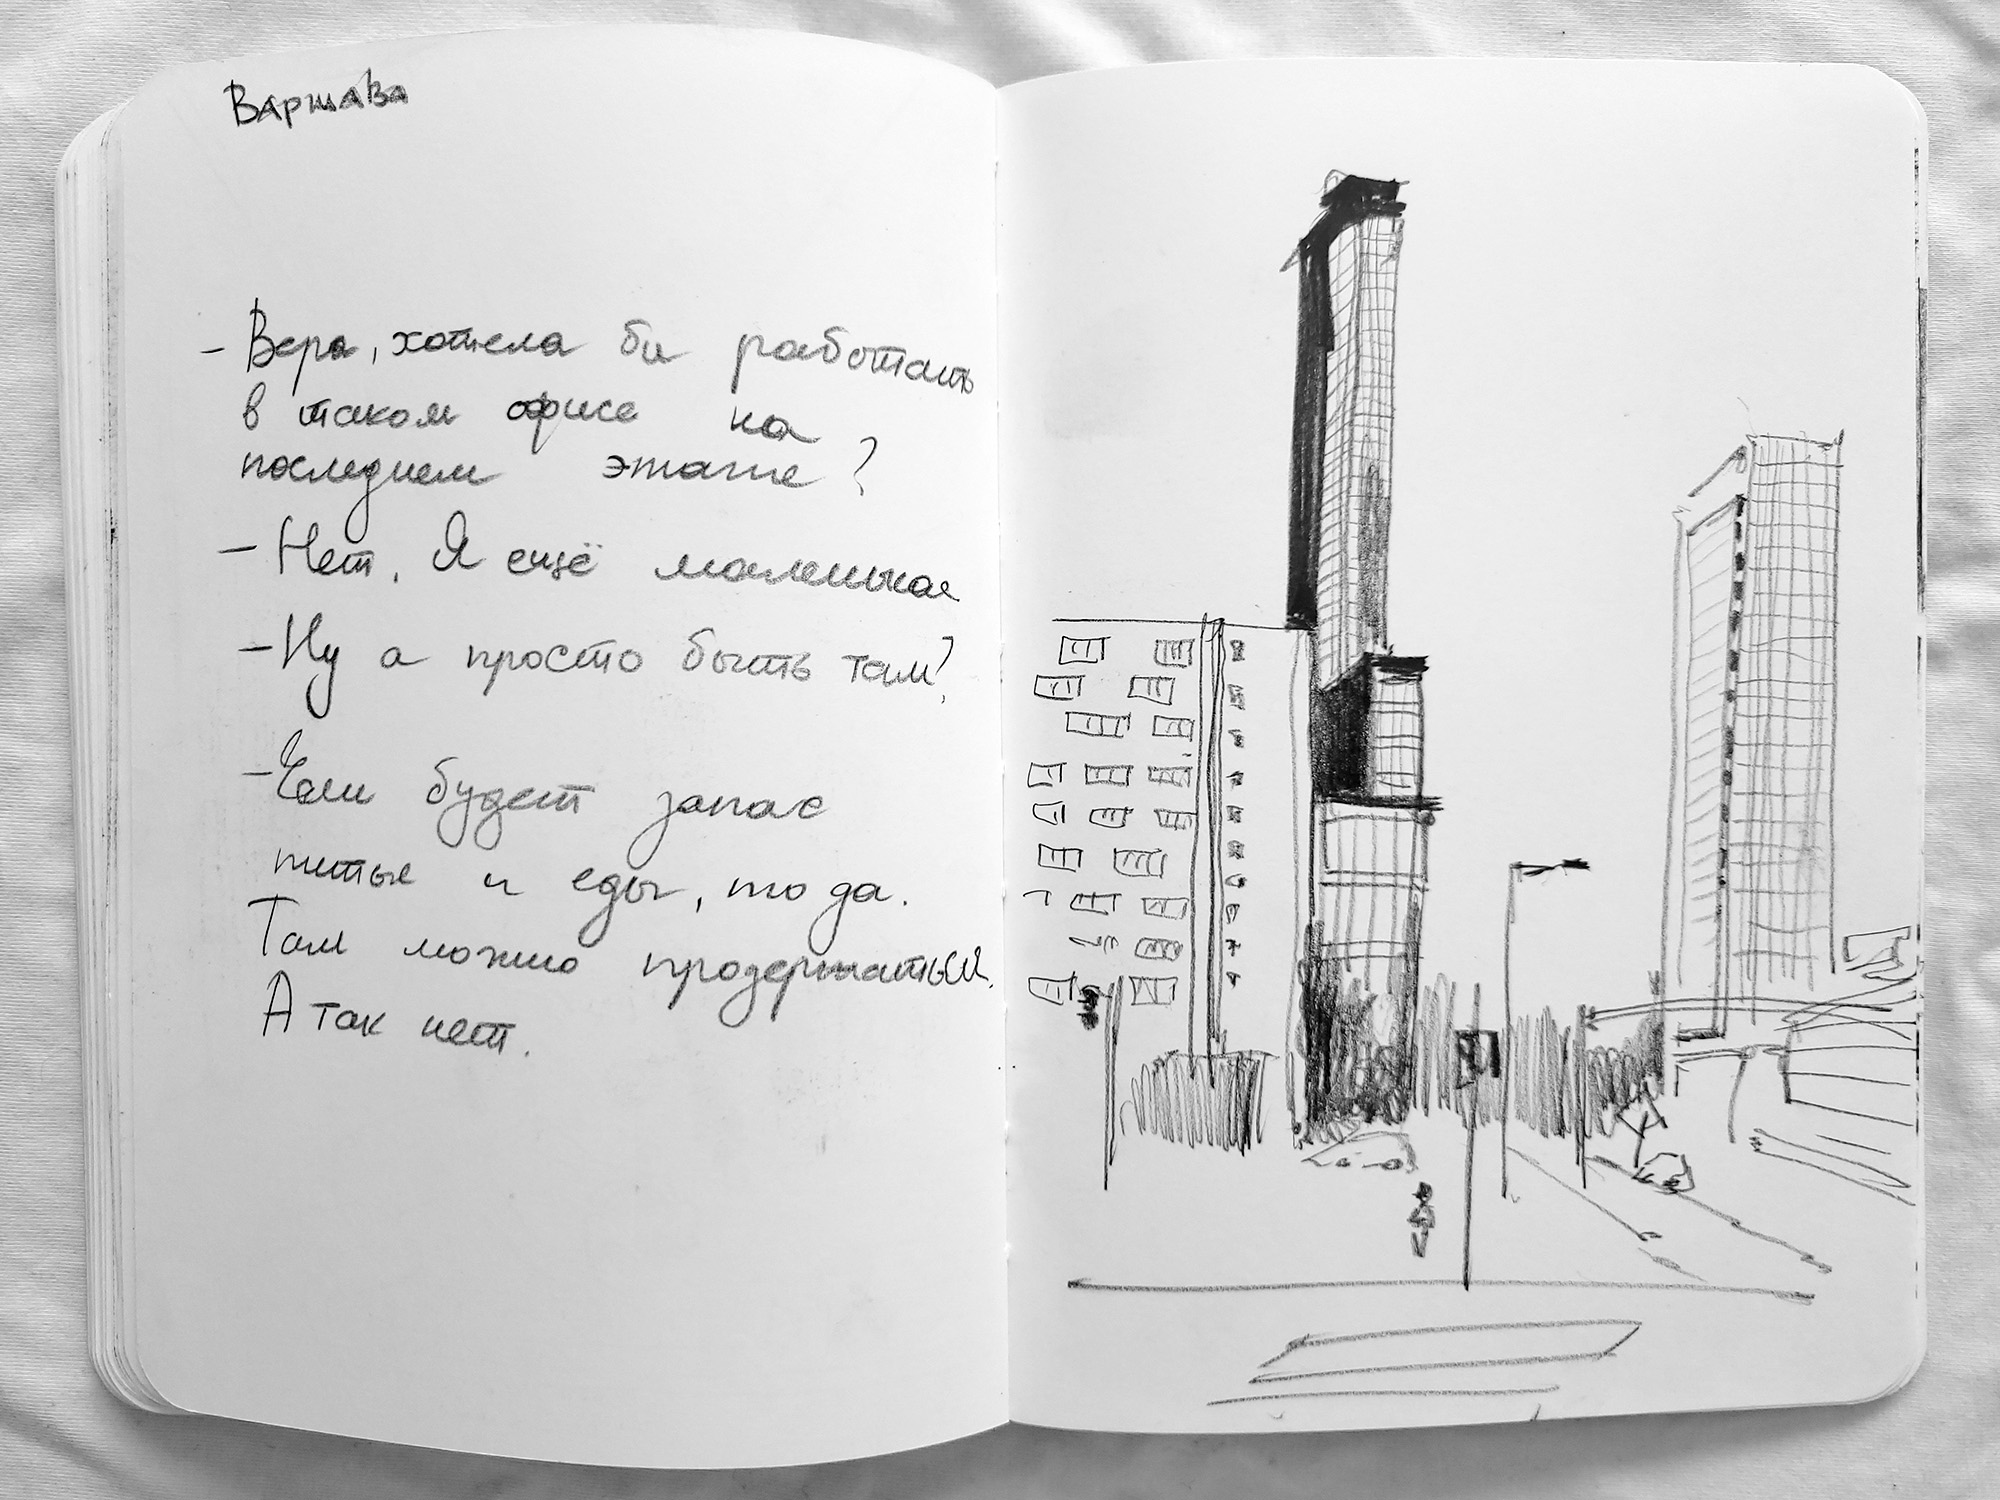 Варшава
- Вера, хотела бы работать
в таком офисе на
последнем этаже?
- Нет. Я ещё маленькая
- Ну а просто быть там?
- Если будет запас
питья и еды, то да.
Там можно продержаться.
А так нет.